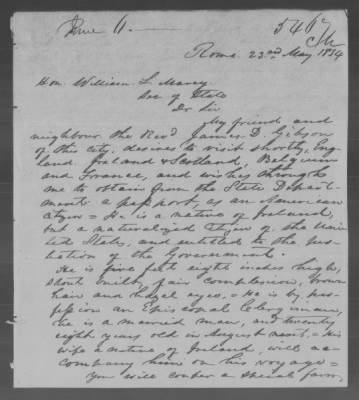 June 6.
Rome 23rd May 1854
Hon. William L. Marcy
Sec of State
Dr Sir
My friend and
neighbour the Revd James D. Gibson
of this city, desires to visit shortly, Eng-
land, Ireland & Scotland, Belgium
and France, and wishes through
me to obtain from the State Depart-
ment a passport, as an American
citizen = He is a native of Ireland,
but a naturalized Citizen of the Uni-
ted States, and entitled to the pro-
tection of the Government.
He is five feet eight inches high,
stout built, fair complexion, brown
hair and hazel eyes. = He is by pro-
fession an Episcopal Clergyman,
he is a married man, and twenty
eight years old in August next. = His
wife a native of Ireland, will ac-
company him on his voyage =
You will confer a special favor,